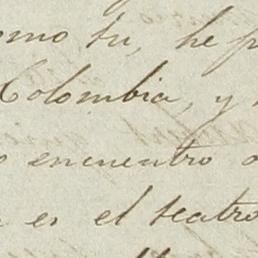 omo tu, he p
Colombia, y
o encuentro
es el teatro